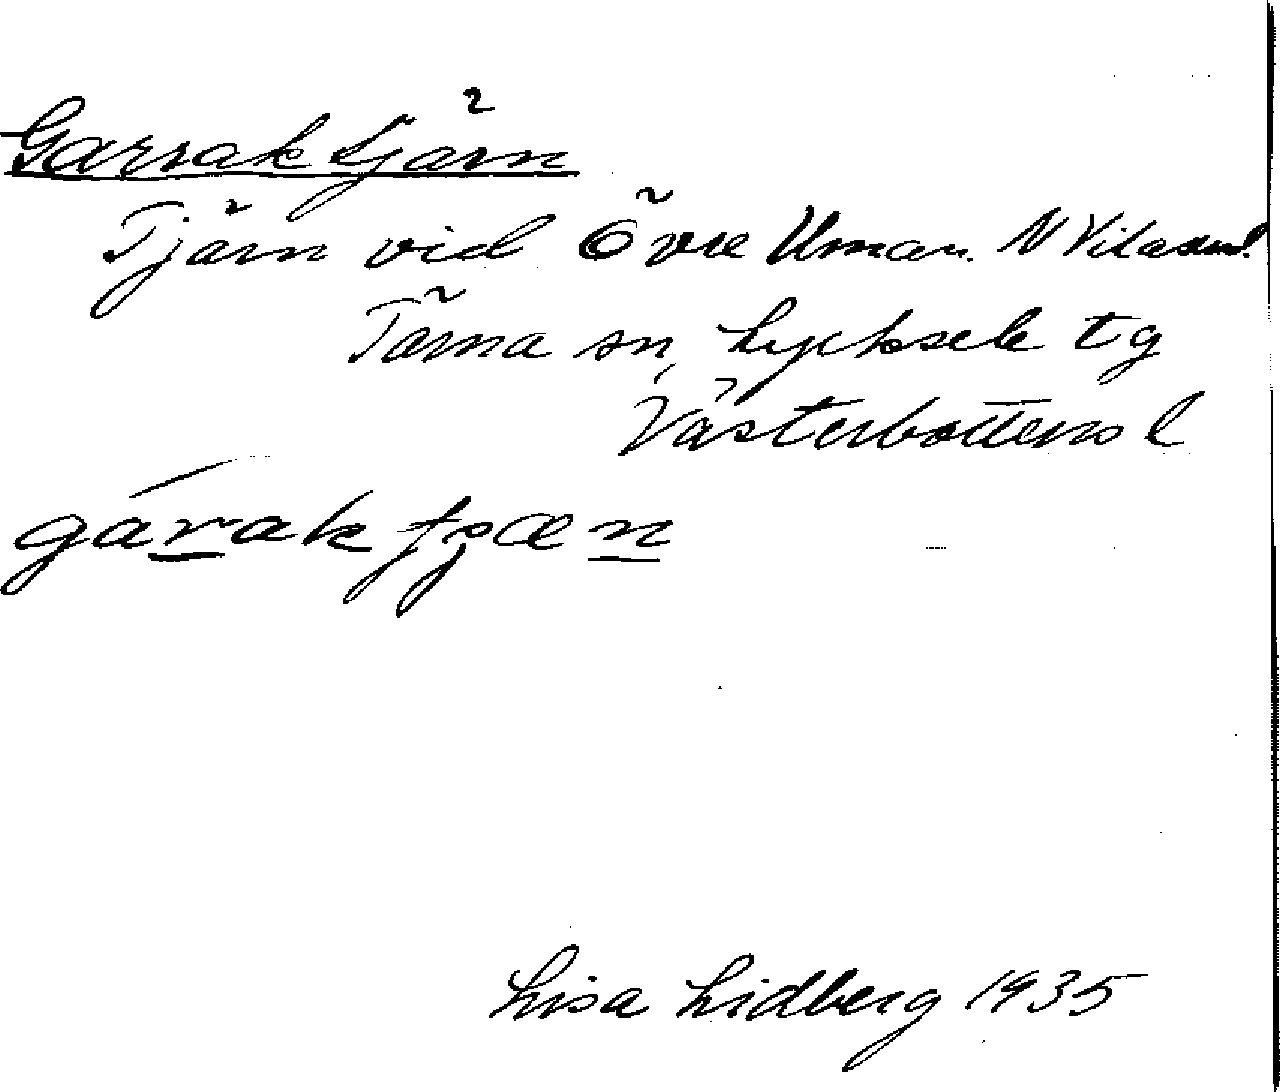 Garraktjärn
Tjärn vid Övre Uman. N
Tärna sn, Lycksele tg
Västerbottens l
gárak tjæn
Lisa Lidberg 1935